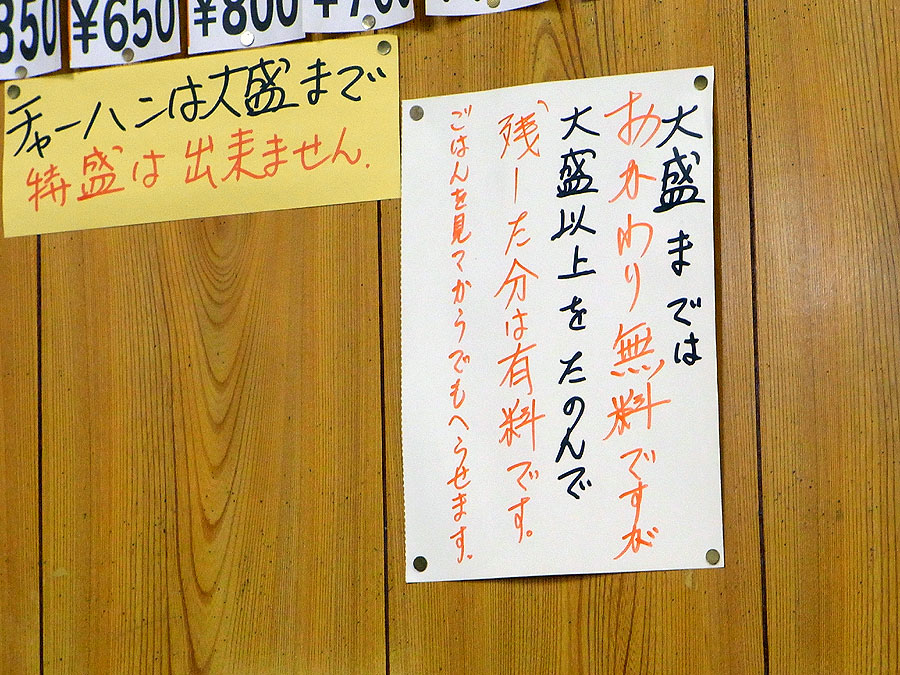 850
¥650
¥800
チャーハンは大盛まで
特盛は出来ません.
大盛までは
おかわり無料ですが
大盛以上をたのんで
残した分は有料です。
ごはんを見てからでもへらせます。